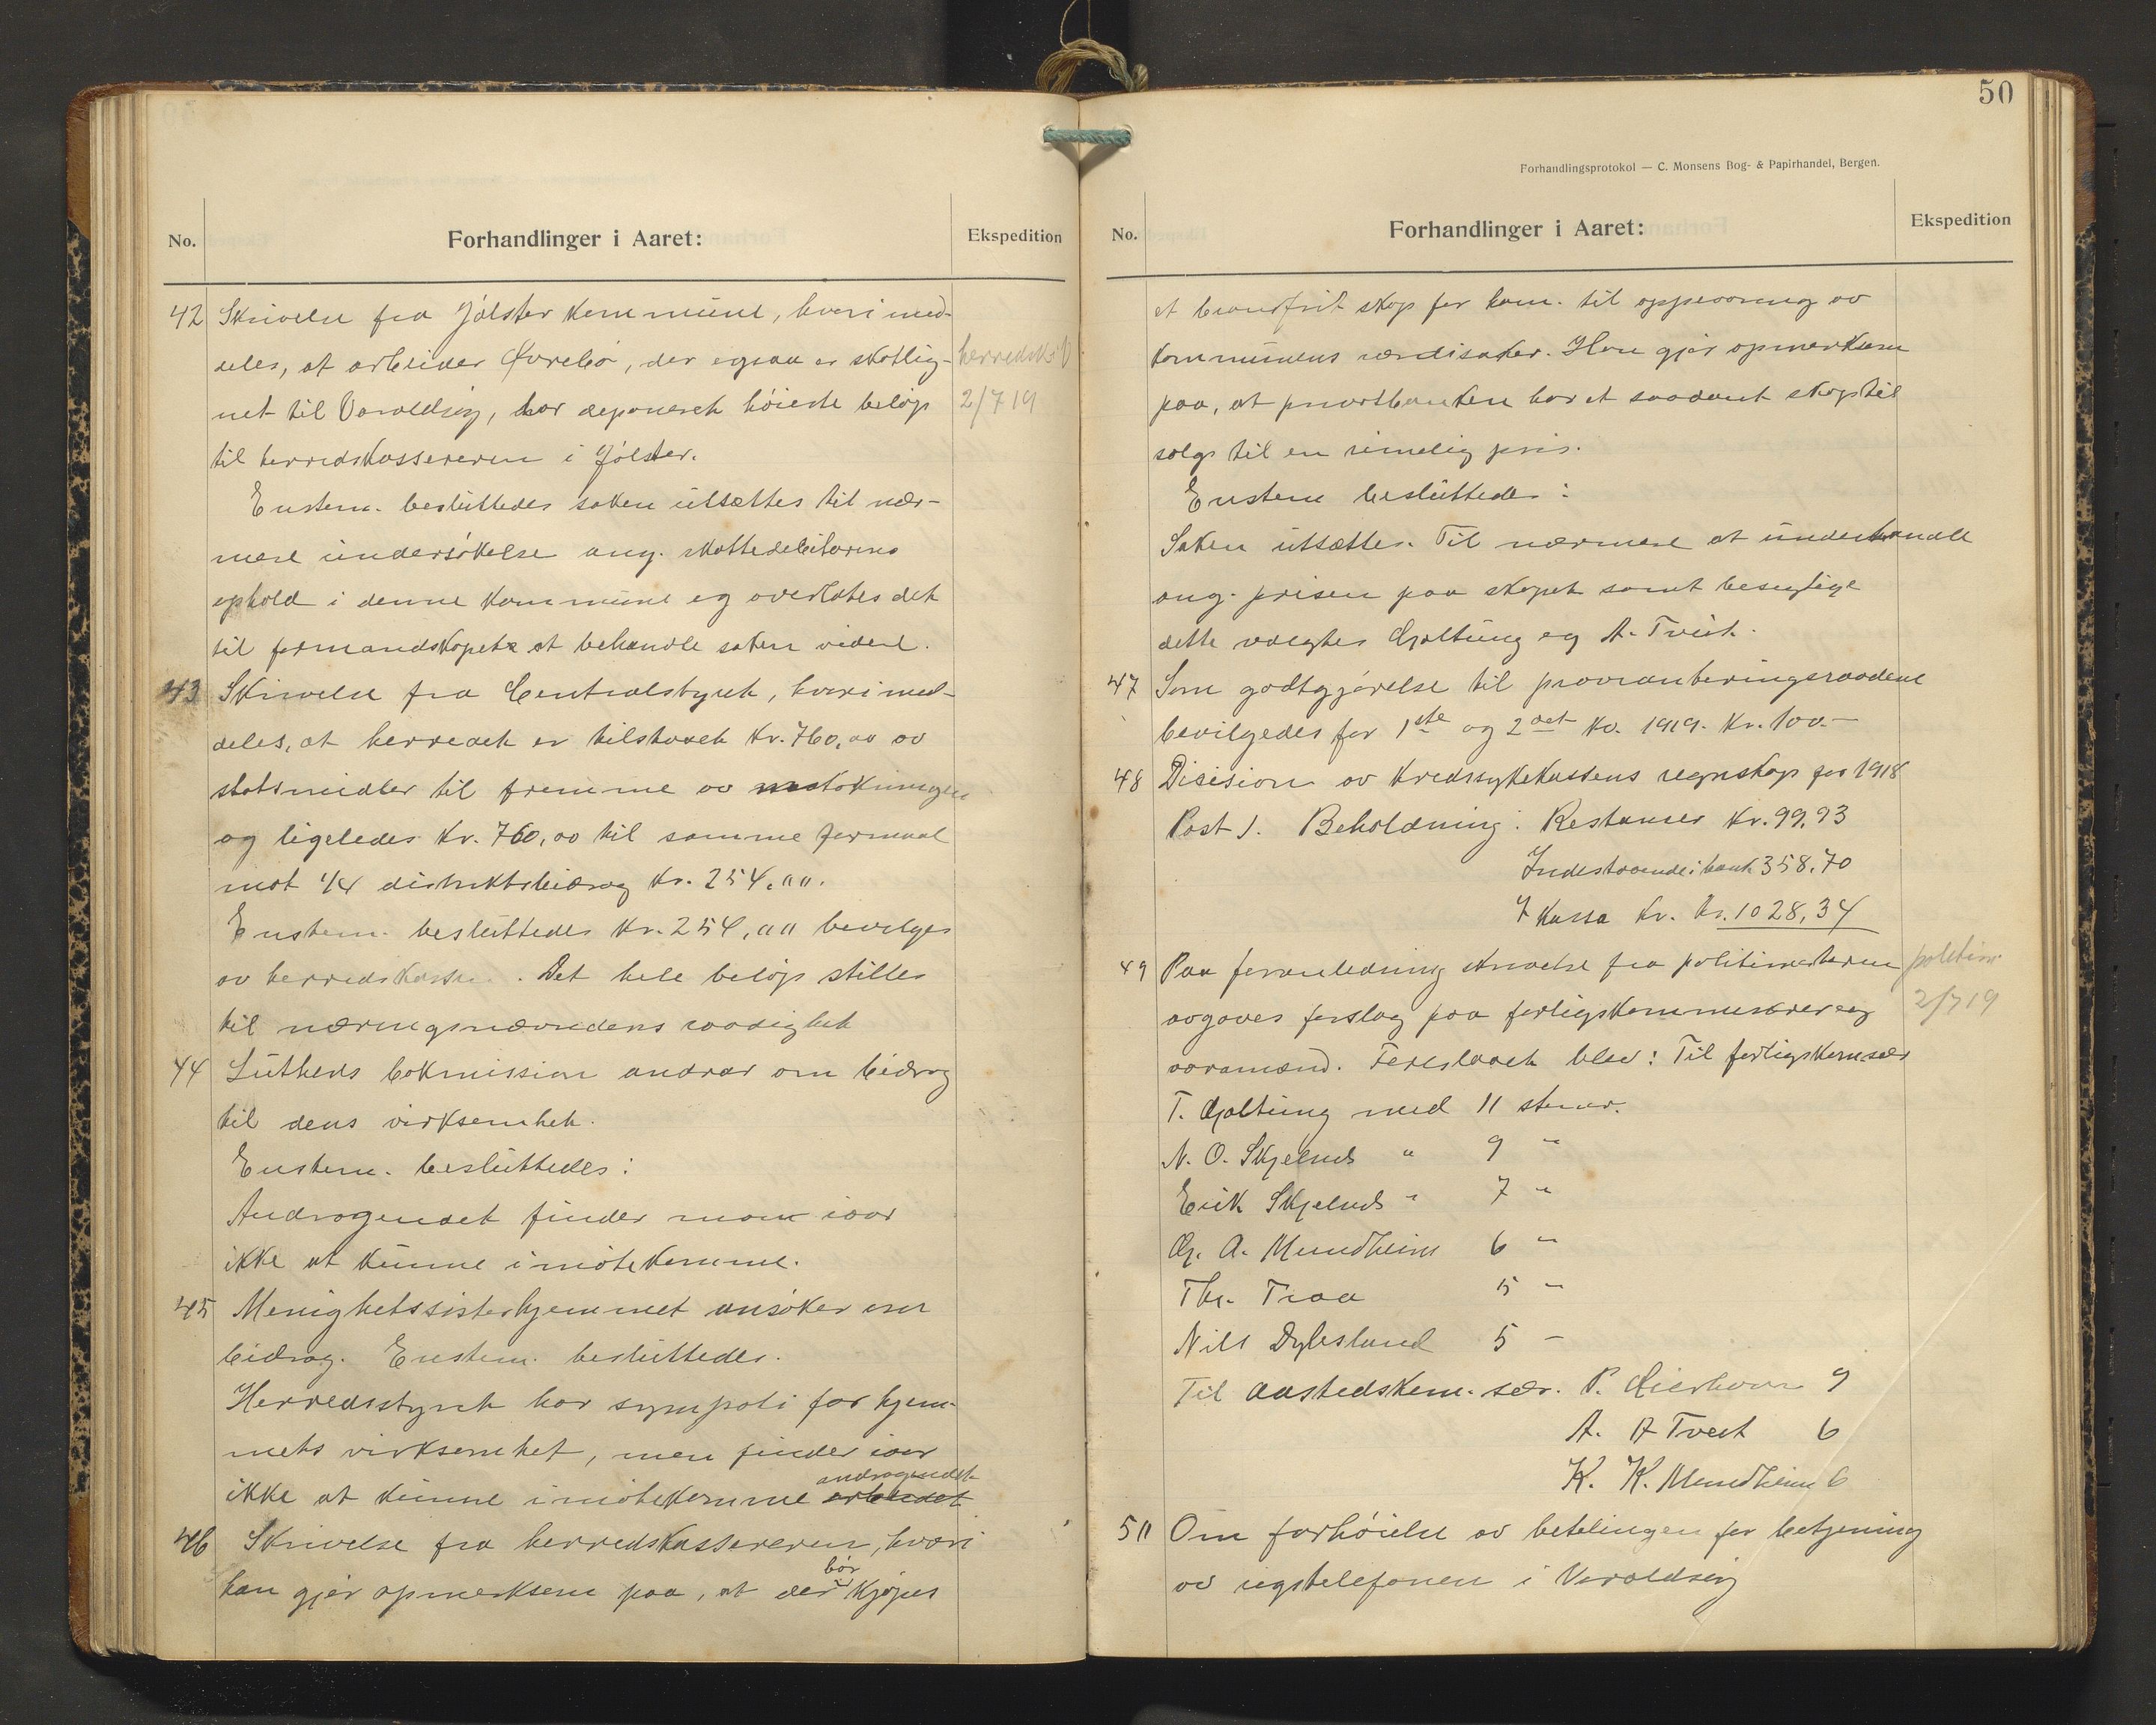 No.
Forhandlinger i Aaret:
Ekspedition
42 Skrivelse fra Jölster kommune, hvori med-
deles, at arbeider Øvrebö, der ogsaa er skatlig-
net til Varaldsöy, har deponeret höieste belöp
til herredskassereren i Jölster.
herredsk.
2/7 19
Enstem. besluttedes saken utsættes til nær-
mere undersökelse ang. skattedebitorens
ophold i denne kommune og overlates det
til formandskapet at behandle saken videre.
43 Skrivelse fra Centralstyret, hvori med-
deles, at herredet er tilstaaet kr. 760,00 av
statsmidler til fremme av matökningen
og ligeledes kr. 760,00 til samme formaal
mot 1/4 distriktsbidrag kr. 254,00.
Enstem. besluttedes kr. 254,00 bevilges
av herredskassen. Det hele belöp stilles
til næringsnævndens raadighet
44 Luthers bokmission andrar om bidrag
til dens virksemhet.
Enstem. besluttedes:
Andragendet finder man iaar
ikke at kunne imötekomme.
45 Menighetssisterhjemmet ansöker om
bidrag. Enstem. besluttedes.
Herredsstyret har sympati for hjem-
mets virksemhet, men finder iaar
ikke at kunne imötekomme arbeidet andragendet
46 Skrivelse fra herredskassereren, hvori
han gjör opmerksom paa, at der bör kjöpes
50
Forhandlingsprotokol — C. Monsens Bog- & Papirhandel, Bergen.
No.
Forhandlinger i Aaret:
Ekspedition
et brandfrit skap for kom. til oppevaring av
kommunens værdisaker. Han gjör opmerksom
paa, at privatbanken har et saadant skap til
salgs til en rimelig pris.
Enstem besluttedes:
Saken utsættes. Til nærmere at underhandle
ang. prisen paa skapet samt besigtige
dette valgtes Galtung og A. Tveit.
47 Som godtgjörelse til provianteringsraadene
bevilgedes for 1ste og 2det kv. 1919. kr. 100.-
48 Disision av kredssykekassens regnskap for 1918
Post 1. Beholdning: Restanser kr. 99,93
Indestaaende i bank 358,70
I kassa kr. kr. 1028,34
49 Paa foranledning skrivelse fra politimesteren
avgaves forslag paa forligskommisærer og
varamænd. Foreslaaet blev: Til forligskomsær
politim.
2/7 19
T. Galtung med 11 stemr.
N. O. Skjelnes " 9 "
Erik Skjelnes " 7 "
G. A. Mundheim 6 "
Thr. Traa 5 "
Nils Dybsland 5 -
Til aastedskom. sær. P. Gierhovn 9
A. A Tveit 6
K. K. Mundheim 6
50 Om forhöielse av betalingen for betjening
av rigstelefonen i Varaldsöy